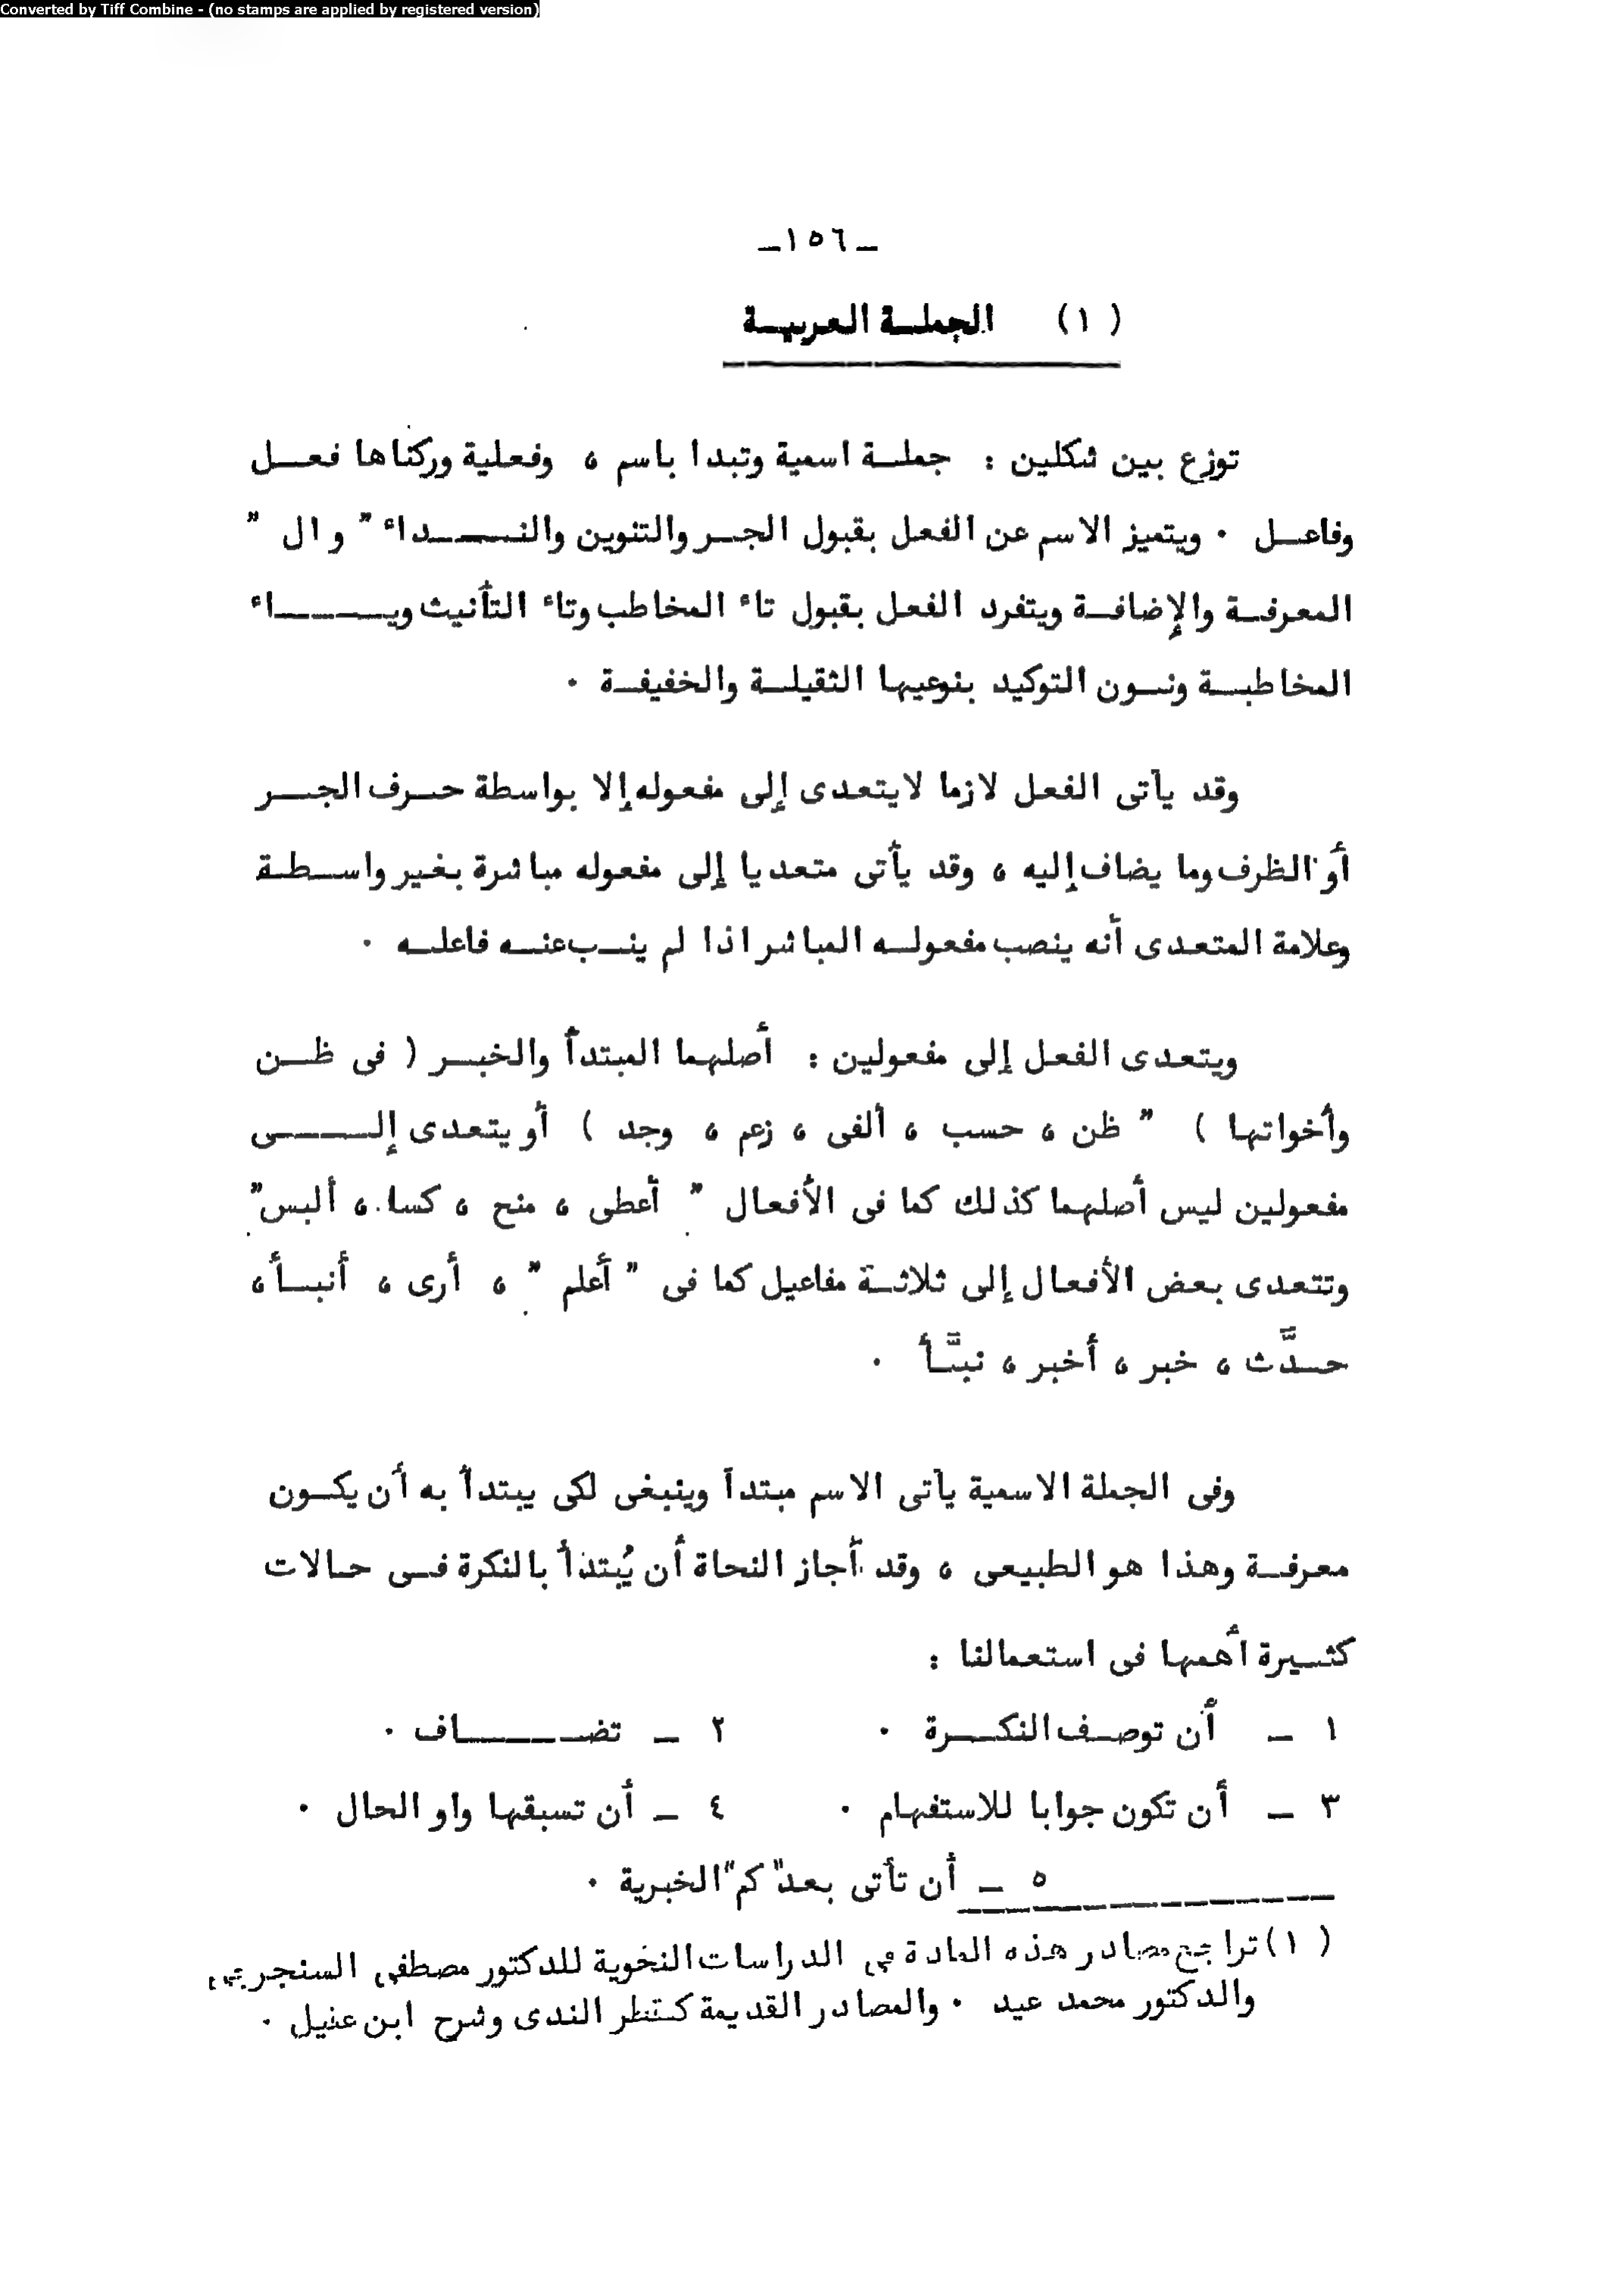 Converted by Tiff Combine - (no stamps are applied by registered version)
ـ ١٥٦ ـ
( ١ ) الجملة العربية
توزع بين شكلين : جملة اسمية وتبدا باسم ، وفعلية وركناها فعل
وفاعل . ويتميز الاسم عن الفعل بقبول الجر والتنوين والنداء " و ال "
المعرفة والإضافة ويتفرد الفعل بقبول تاء المخاطب وتاء التأنيث وياء
المخاطبة ونون التوكيد بنوعيها الثقيلة والخفيفة .
وقد يأتى الفعل لازما لايتعدى إلى مفعوله إلا بواسطة حرف الجر
أو الظرف وما يضاف إليه ، وقد يأتى متعديا إلى مفعوله مباشرة بغير واسطة
وعلامة المتعدى أنه ينصب مفعوله المباشر اذا لم ينب عنه فاعله .
ويتعدى الفعل إلى مفعولين : أصلهما المبتدأ والخبر ( فى ظن
وأخواتها ) " ظن ، حسب ، ألفى ، زعم ، وجد ) أو يتعدى إلى
مفعولين ليس أصلهما كذلك كما فى الأفعال " أعطى ، منح ، كسا ، ألبس"
وتتعدى بعض الأفعال إلى ثلاثة مفاعيل كما فى " أعلم " ، أرى ، أنبأ ،
حدَّث ، خبر ، أخبر ، نبَّأ .
وفى الجملة الاسمية يأتى الاسم مبتدأ وينبغى لكى يبتدأ به أن يكون
معرفة وهذا هو الطبيعى ، وقد أجاز النحاة أن يُبتدأ بالنكرة فى حالات
كثيرة أهمها فى استعمالنا :
١ ـ أن توصف النكرة . ٢ ـ تضاف .
٣ ـ أن تكون جوابا للاستفهام . ٤ ـ أن تسبقها واو الحال .
٥ ـ أن تأتى بعد "كم" الخبرية .
( ١ ) تراجع مصادر هذه المادة فى الدراسات النحوية للدكتور مصطفى السنجرجى
والدكتور محمد عيد . والمصادر القديمة كقطر الندى وشرح ابن عقيل .